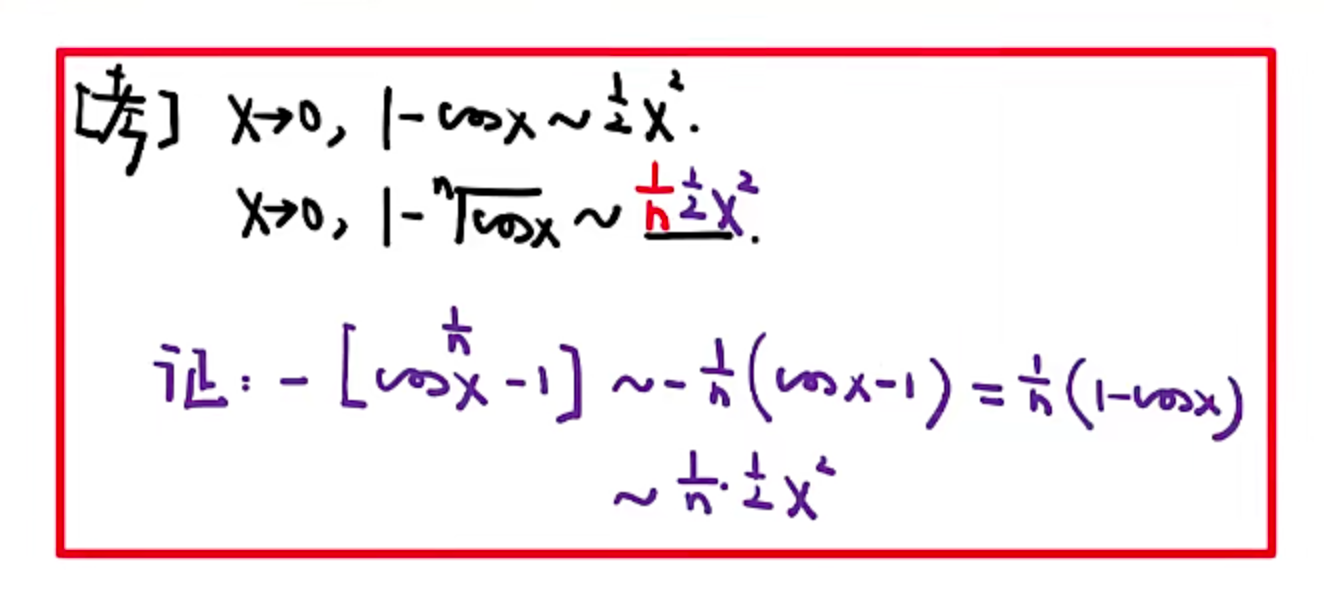 [考] x→0, 1-cosx ~ 1/2 x².
x→0, 1-ⁿ√cosx ~ 1/n 1/2 x².
证: -[cos^(1/n) x -1] ~ -1/n (cosx-1) = 1/n (1-cosx)
~ 1/n · 1/2 x²